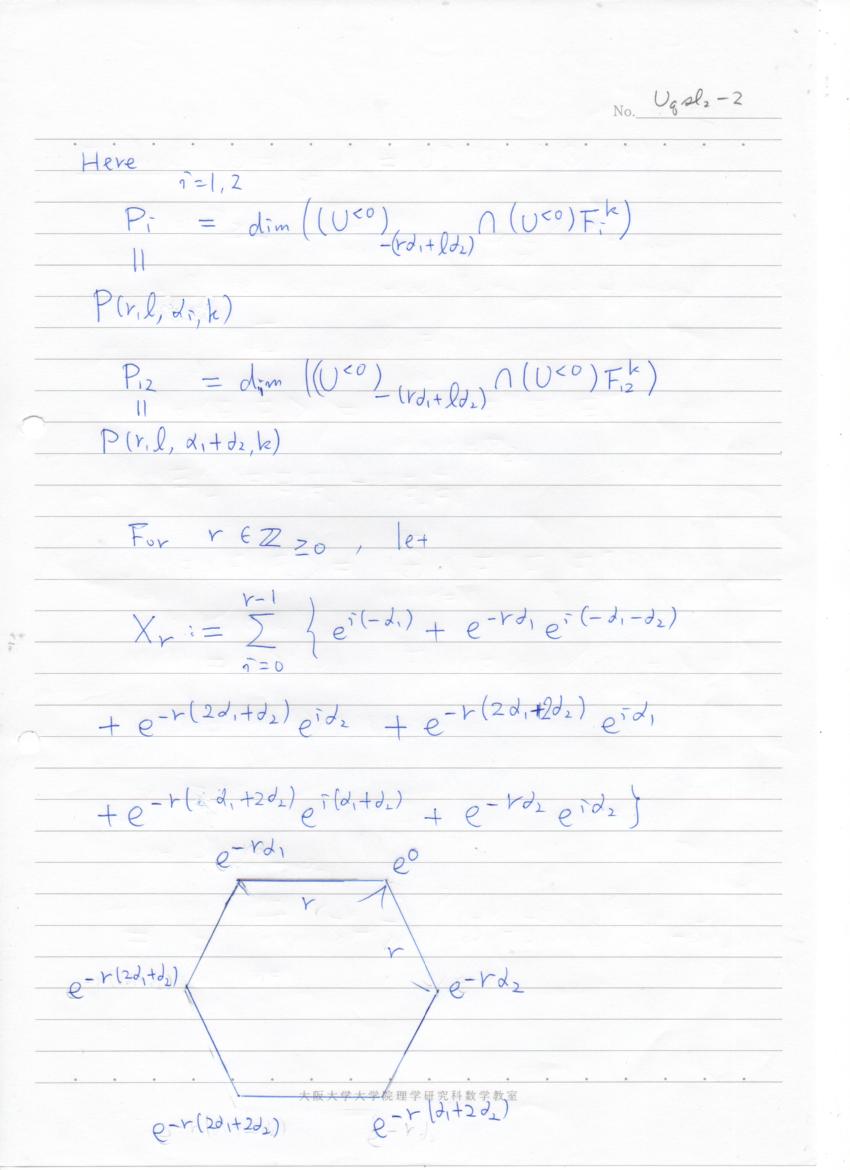 No. Uqsl₂-2
Here
i=1,2
Pᵢ = dim ((U^{<0})_{-(rα₁+lα₂)} ∩ (U^{<0})Fᵢ^k)
||
P(r,l,αᵢ,k)
P₁₂ = dim ((U^{<0})_{-(rα₁+lα₂)} ∩ (U^{<0})F₁₂^k)
||
P(r,l,α₁+α₂,k)
For r ∈ ℤ_{≥0}, let
X_r := ∑_{i=0}^{r-1} { e^{i(-α₁)} + e^{-rα₁} e^{i(-α₁-α₂)}
+ e^{-r(2α₁+α₂)} e^{iα₂} + e^{-r(2α₁+2α₂)} e^{iα₁}
+ e^{-r(α₁+2α₂)} e^{i(α₁+α₂)} + e^{-rα₂} e^{iα₂} }
e^{-rα₁} e^0
r
r
e^{-r(2α₁+α₂)} e^{-rα₂}
大阪大学大学院理学研究科数学教室
e^{-r(2α₁+2α₂)} e^{-r(α₁+2α₂)}